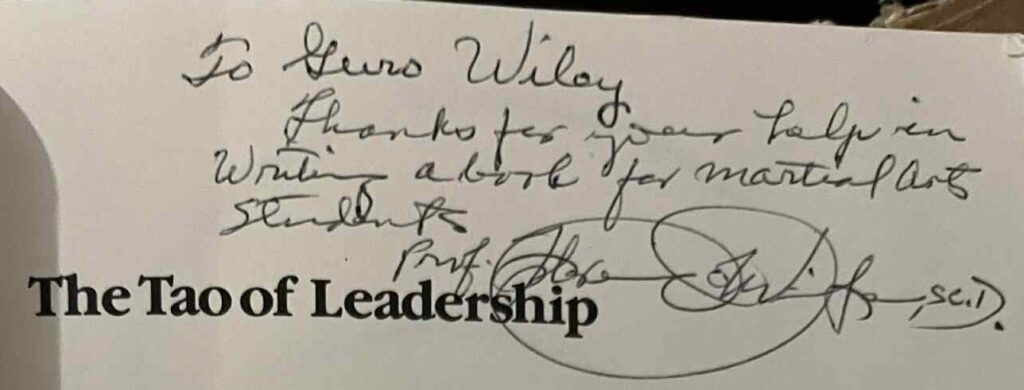 To Guro Wiley
Thanks for your help in
Writing a book for martial arts
students
Prof.
, Sc.D.
The Tao of Leadership